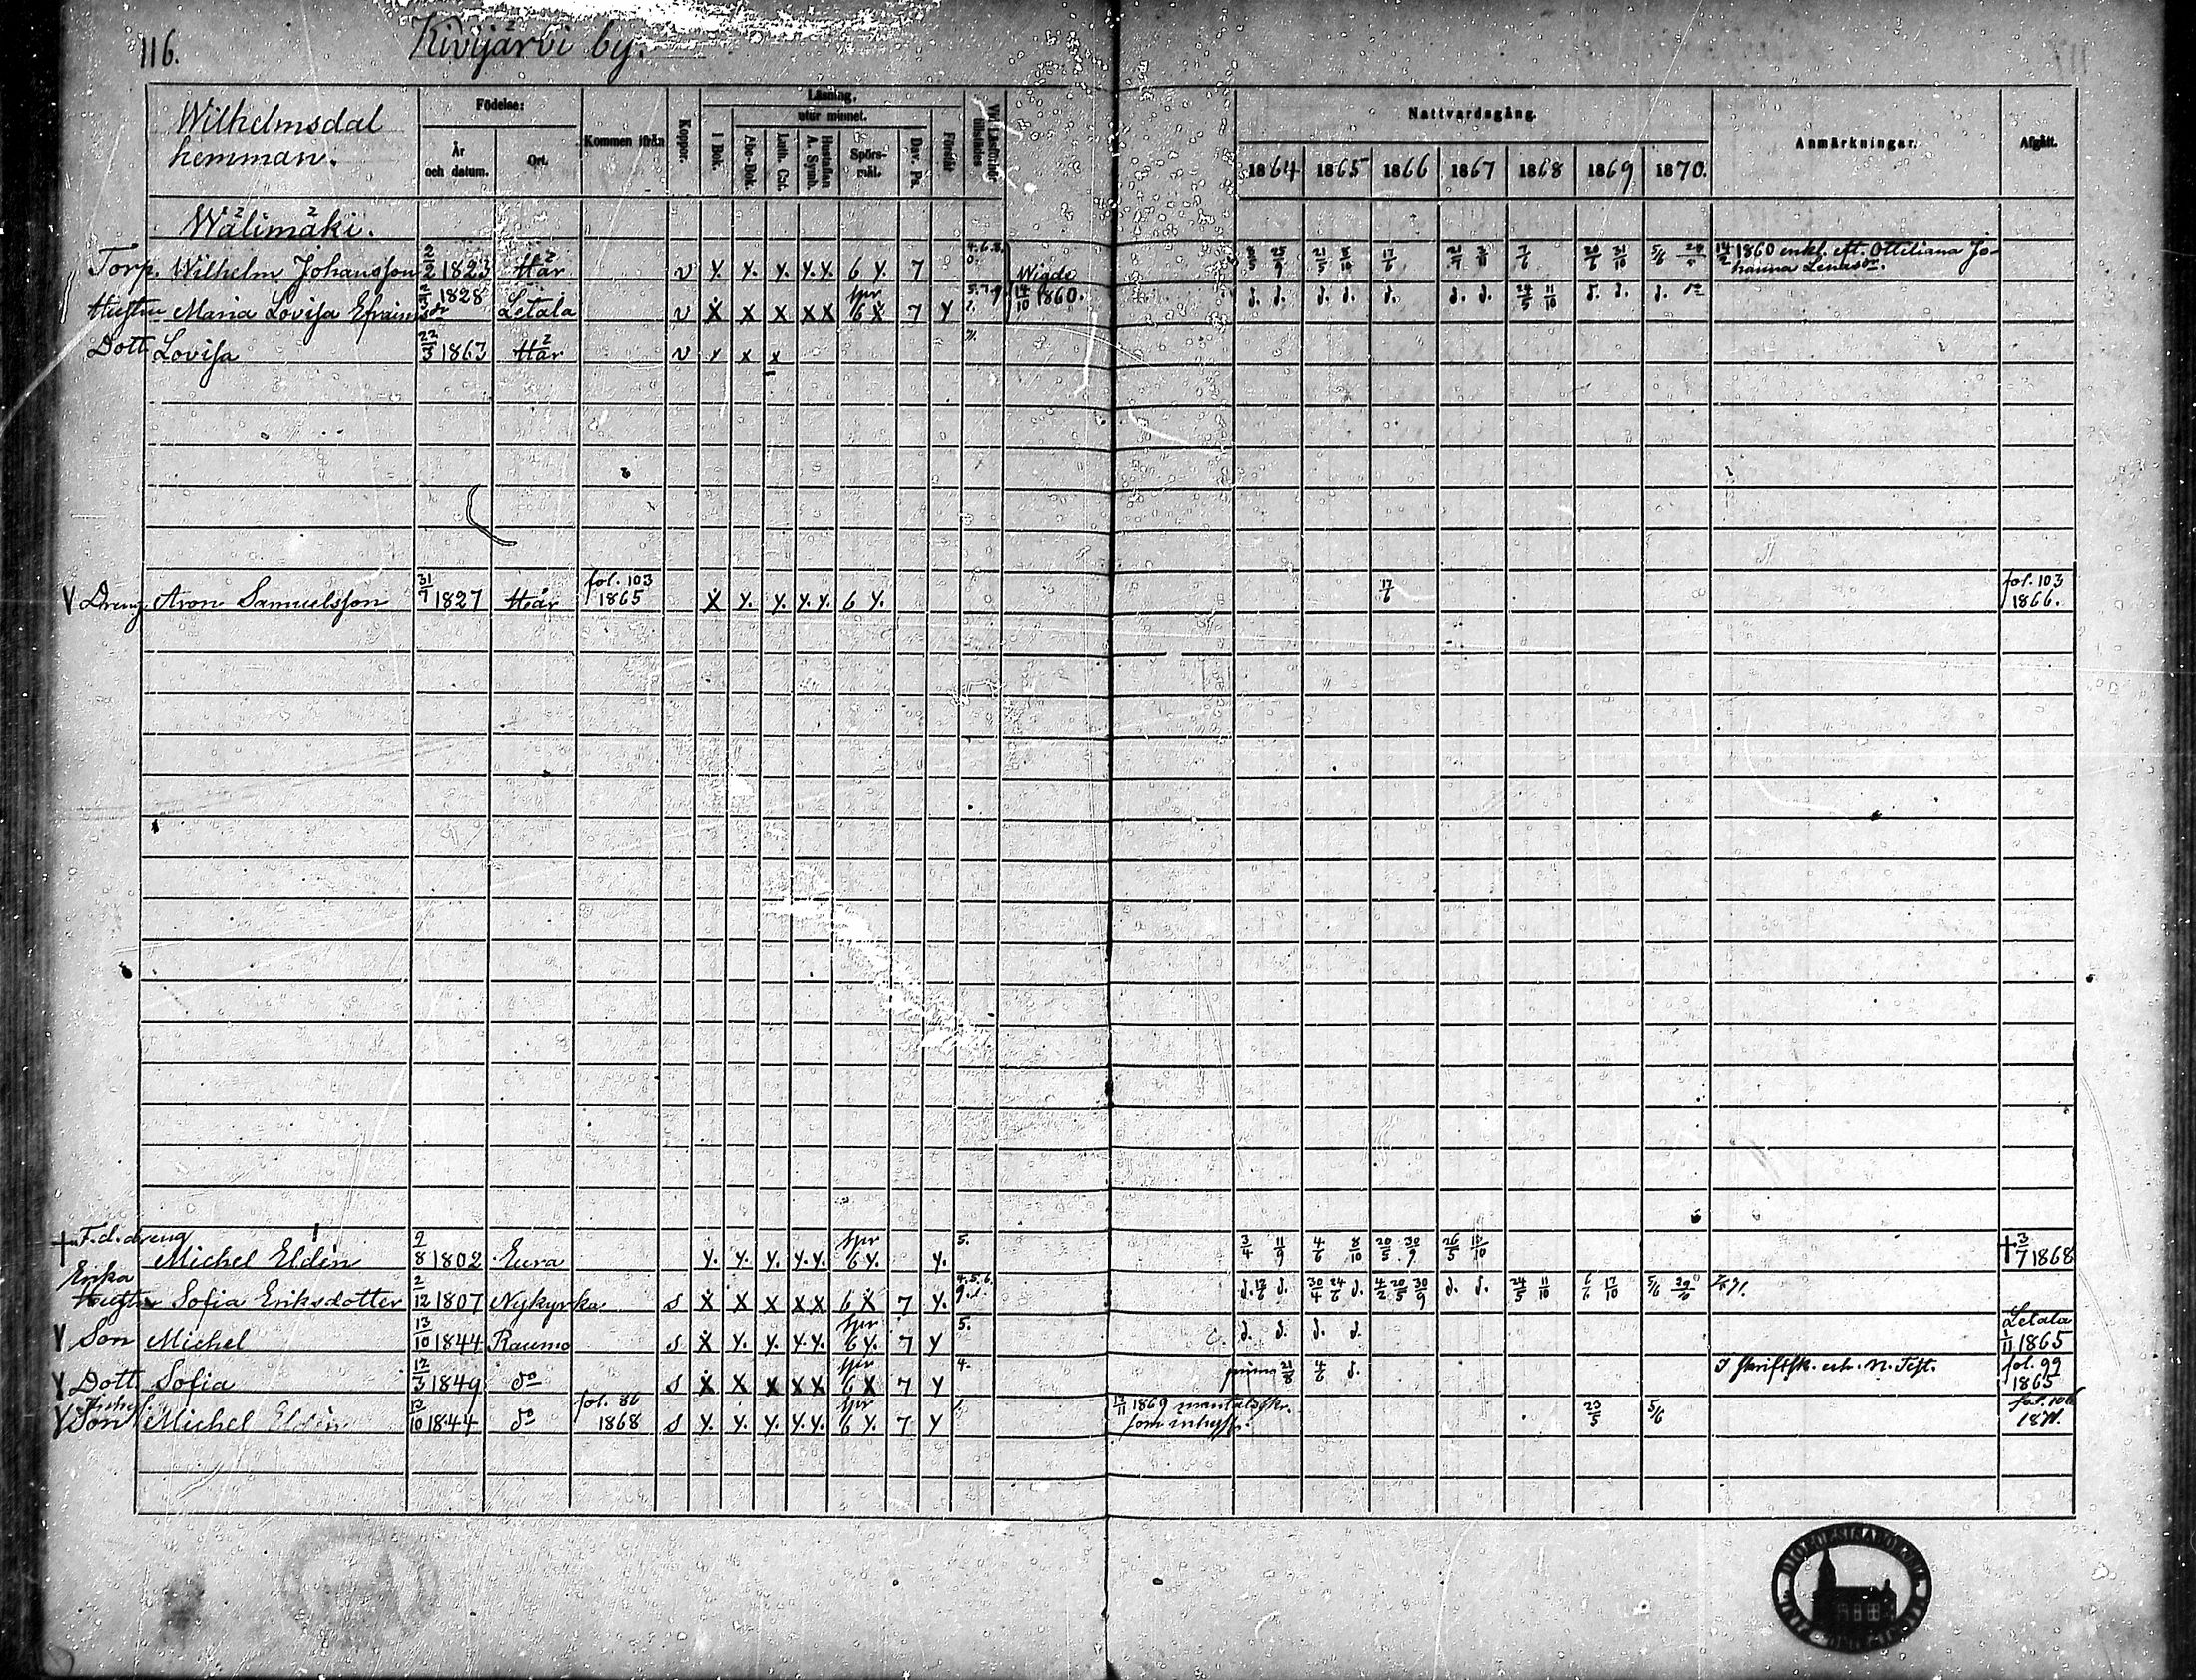 116. Kivijärvi by.
Wilhelmsdal hemman.
Födelse: År och datum. Ort. Kommen ifrån Koppor. Läsning, I Bok. utur minnet. Abc-Bok. Luth. Cat. Hustaflan A. Symb. Spörsmål. Dav. Ps. Förstår Nattvardsgång. 1864 1865 1866 1867 1868 1869 1870. Anmärkningar. Afgått.
Wälimäki.
Torp. Wilhelm Johansson 2/2 1823 Här v y. y. y. y.y. 6 y. 7 Wigde 14/10 1860. 17/6 7/6 20/6 31/10 5/6 1860 enkl. eft. Ottiliana Johanna Lenasdr.
Hustru Maria Lovisa Efraimsdr 1828 Letala v x x x x x spr 6 x 7 y d. d. d. d. d. d. d. 24/5 11/10 d. d. d. do
Dott. Lovisa 22/3 1863 Här v x x
Dreng Aron Samuelsson 31/7 1827 Här fol. 103 1865 x y. y. y. y. 6 y. 17/6 fol. 103 1866.
F. d. dreng
Michel Eldén 2/8 1802 Eura y. y. y. y.y. spr 6 y. y. 5. 3/4 11/9 4/6 8/10 20/5 30/9 26/5 † 3/7 1868
Erika
Hustru Sofia Eriksdotter 2/12 1807 Nykyrka s x x x x x 6 x 7 y. 4. 5. 6. d. 17/6 d. 30/4 24/6 d. 4/2 20/5 30/9 d. d. 24/5 11/10 6/6 17/10 5/6
Son Michel 13/10 1844 Raumo s x y. y. y.y. spr 6 y. 7 y 5. d. d. d. d. Letala 1/11 1865
Dott. Sofia 12/3 1849 do s x x x x x spr 6 x 7 y 4. 21/8 4/6 d. I skriftsk. erh. N. Test. fol. 99 1865
Son Michel Eldén 13/10 1844 do fol. 86 1868 s y. y. y. y.y. spr 6 y. 7 y 13/11 1869 mantalsskr. som inhyss. 23/5 5/6